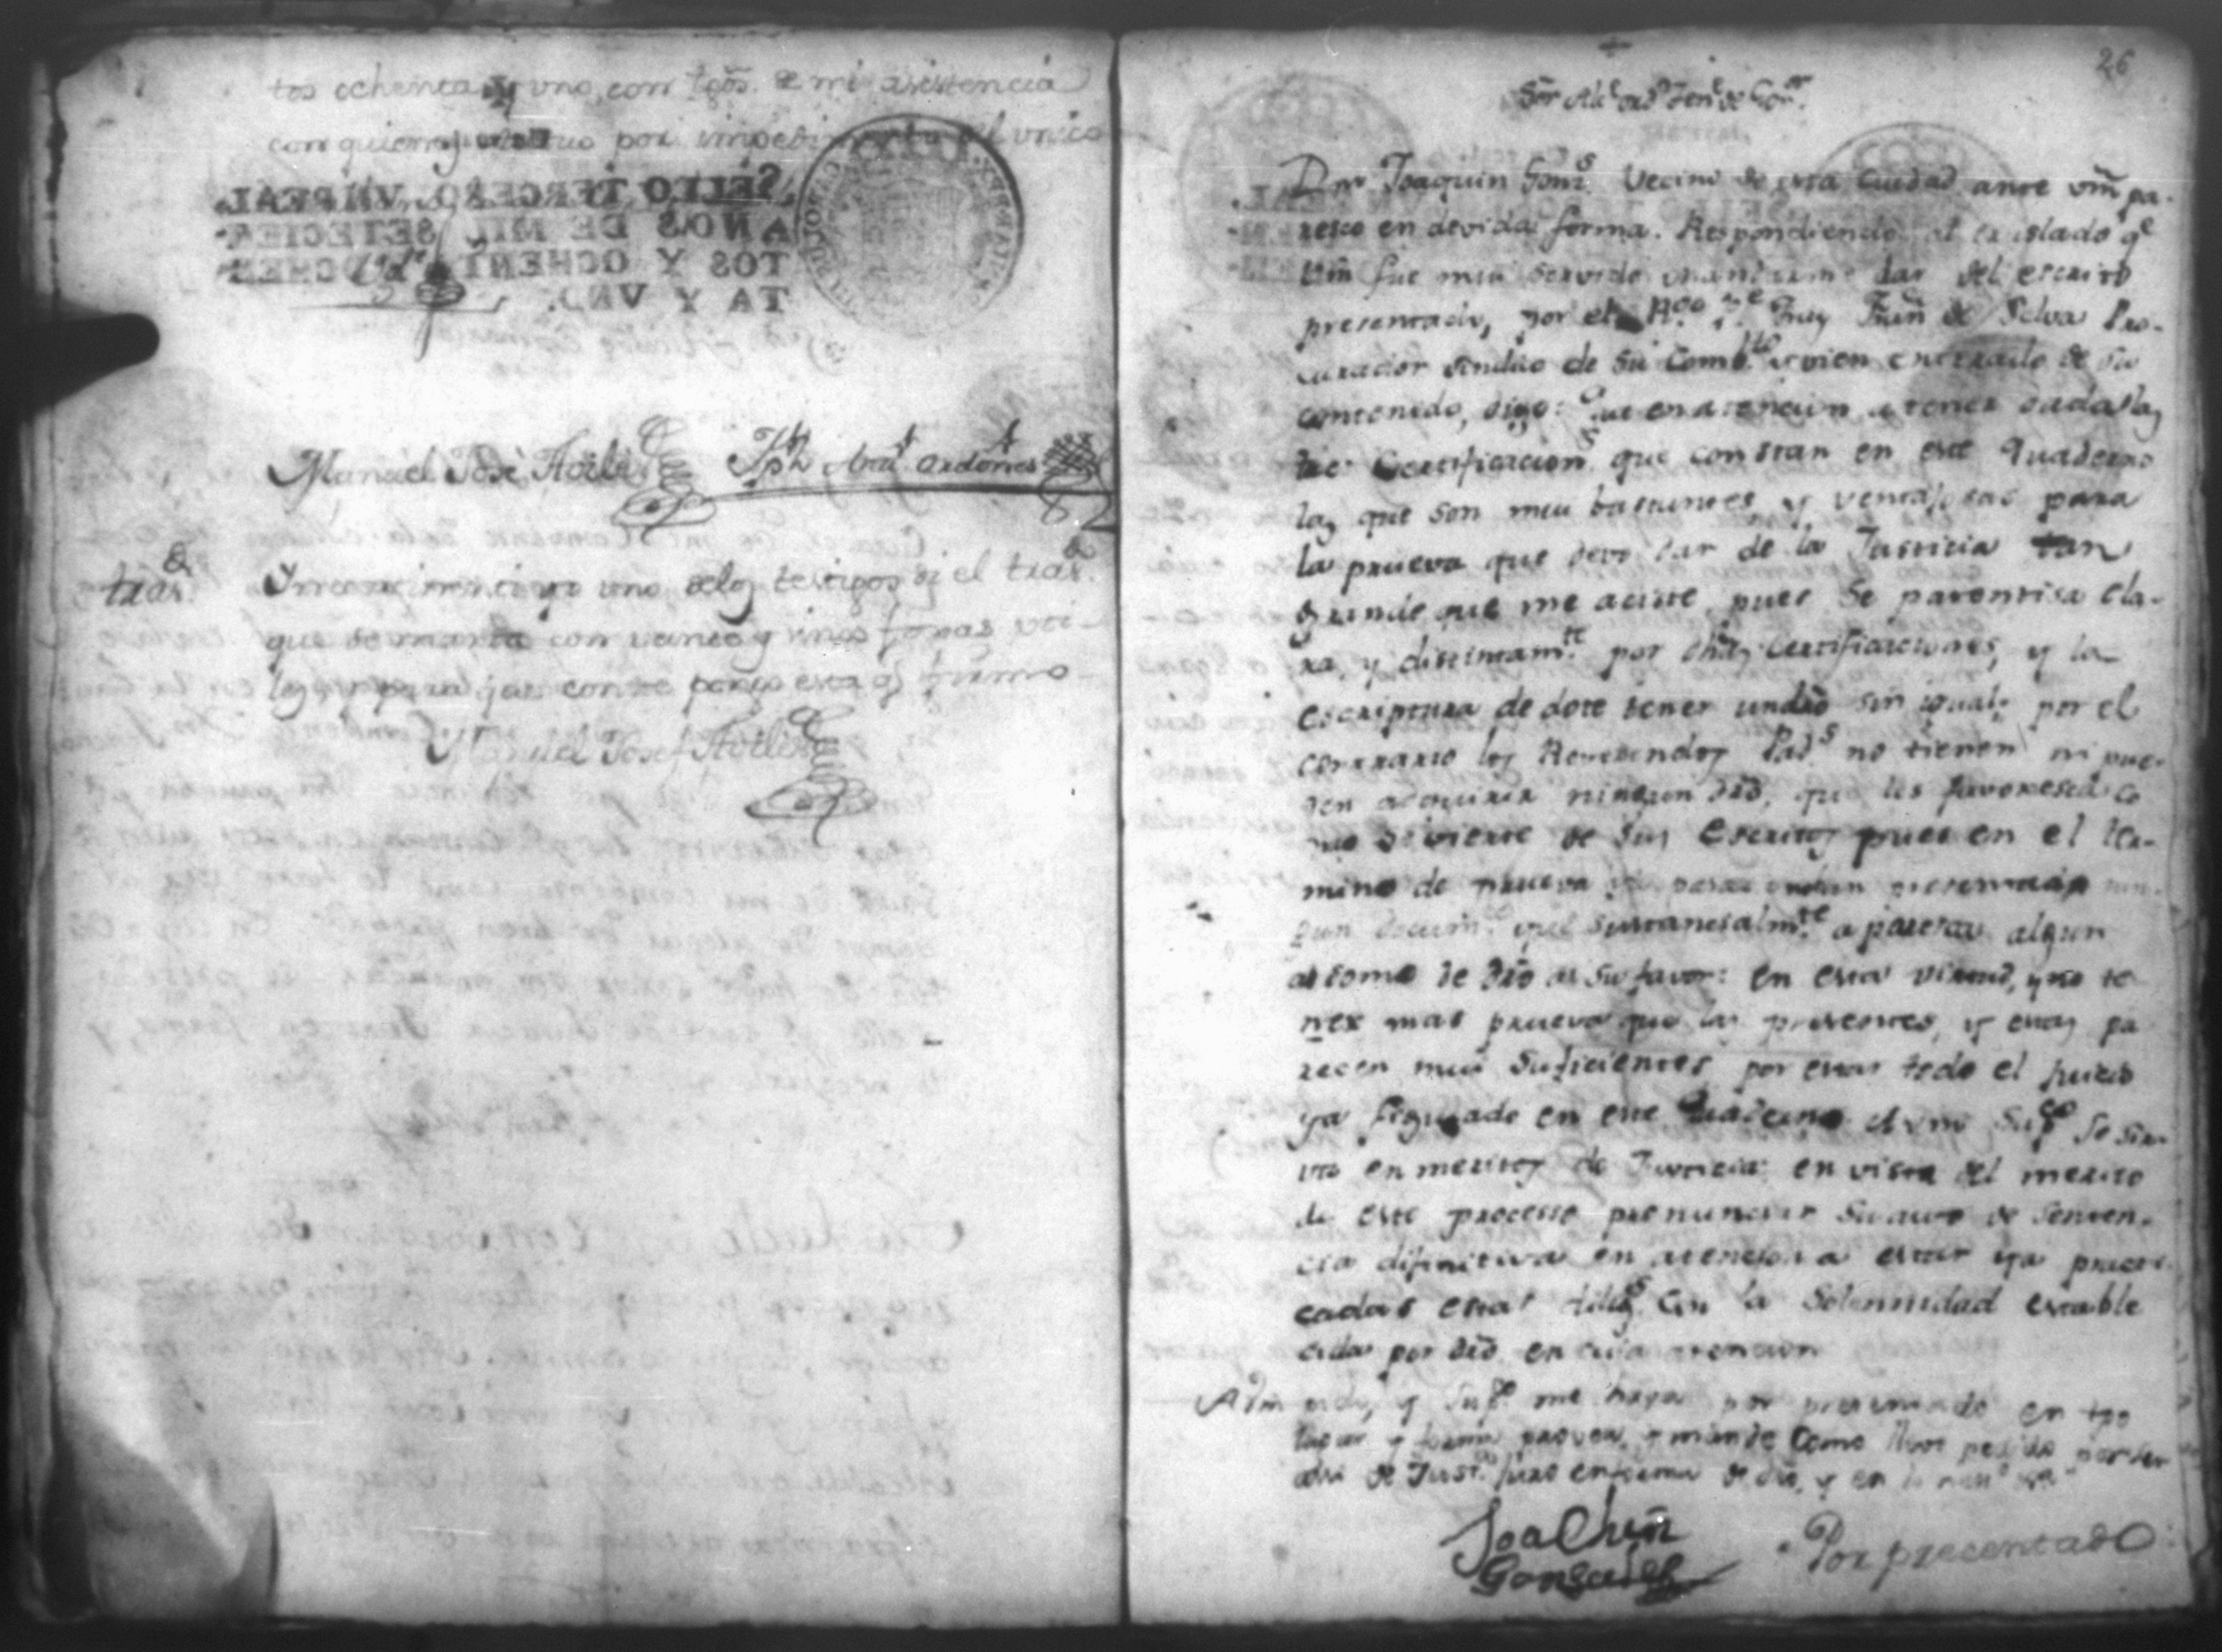 tos ochenta y uno, con tgõs. de mi asistencia
con quienes actuo por impedimento del unico
SELLO TERCERO, VN REAL,
AÑOS DE MIL SETECIEN-
TOS Y OCHENT
TA Y VNO.
Manuel José Aviles Jph Ordoñes
tras.do
Yncontinenti yo uno de los testigos di el tras.do
que se manda con
y para que conste pongo esta q.e firmo
Manuel Josef Aviles
26
Sõr Alc.e ord.o Ten.e de Gov.or
Dn Joaquin Gonz.s Vecino de esta Ciudad ante Vm̃ pa-
resco en devida forma. Respondiendo al traslado q.e
Vm̃ fue mui servido mandarme dar del escrito
presentado, por el R.do P.e Fray Fran.co de Selva Pro-
curador sindico de su Comb.to y vien enterado de su
contenido, digo: Que en atencion a tener dadas las
tres Certificacion.s que constan en este Quaderno
las que son mui bastantes, y ventajosas para
la prueva que devo dar de la Justicia tan
grande que me aciste, pues se patentisa cla-
ra, y distintam.te por dhas Certificaciones, y la
escriptura de dote tener un dr̃o sin igual; por el
contrario los Reverendos Pad.s no tienen ni pue-
den adquirir ningun dr̃o, que les favoresca co
mo se vierte de sus Escritos pues en el ter-
mino de prueva presentado nin-
gun docum.to que sustancialm.te aparesca algun
asomo de dr̃o a su favor: en esta virtud, y no te
ner mas prueva que las presentes, y estas pa
recen mui suficientes por estar todo el juicio
ya figurado en este Quaderno A Vm̃ Sup.co se sir-
va en meritos de Justicia en vista del merito
de este processo pronunciar su auto de Senten-
cia difinitiva en atencion a estar ya practi-
cadas estas dilig.s con la Solemnidad estable
cida por dr̃o en cuia atencion
A Vm̃ pido, y Sup.co me haya por presentado en tpo
lugar y forma provea, y mande como llevo pedido por ser
asi de Just.a juro en forma de dr̃o, y en lo nes.o &a
Joachin
Gonsales
Por presentado